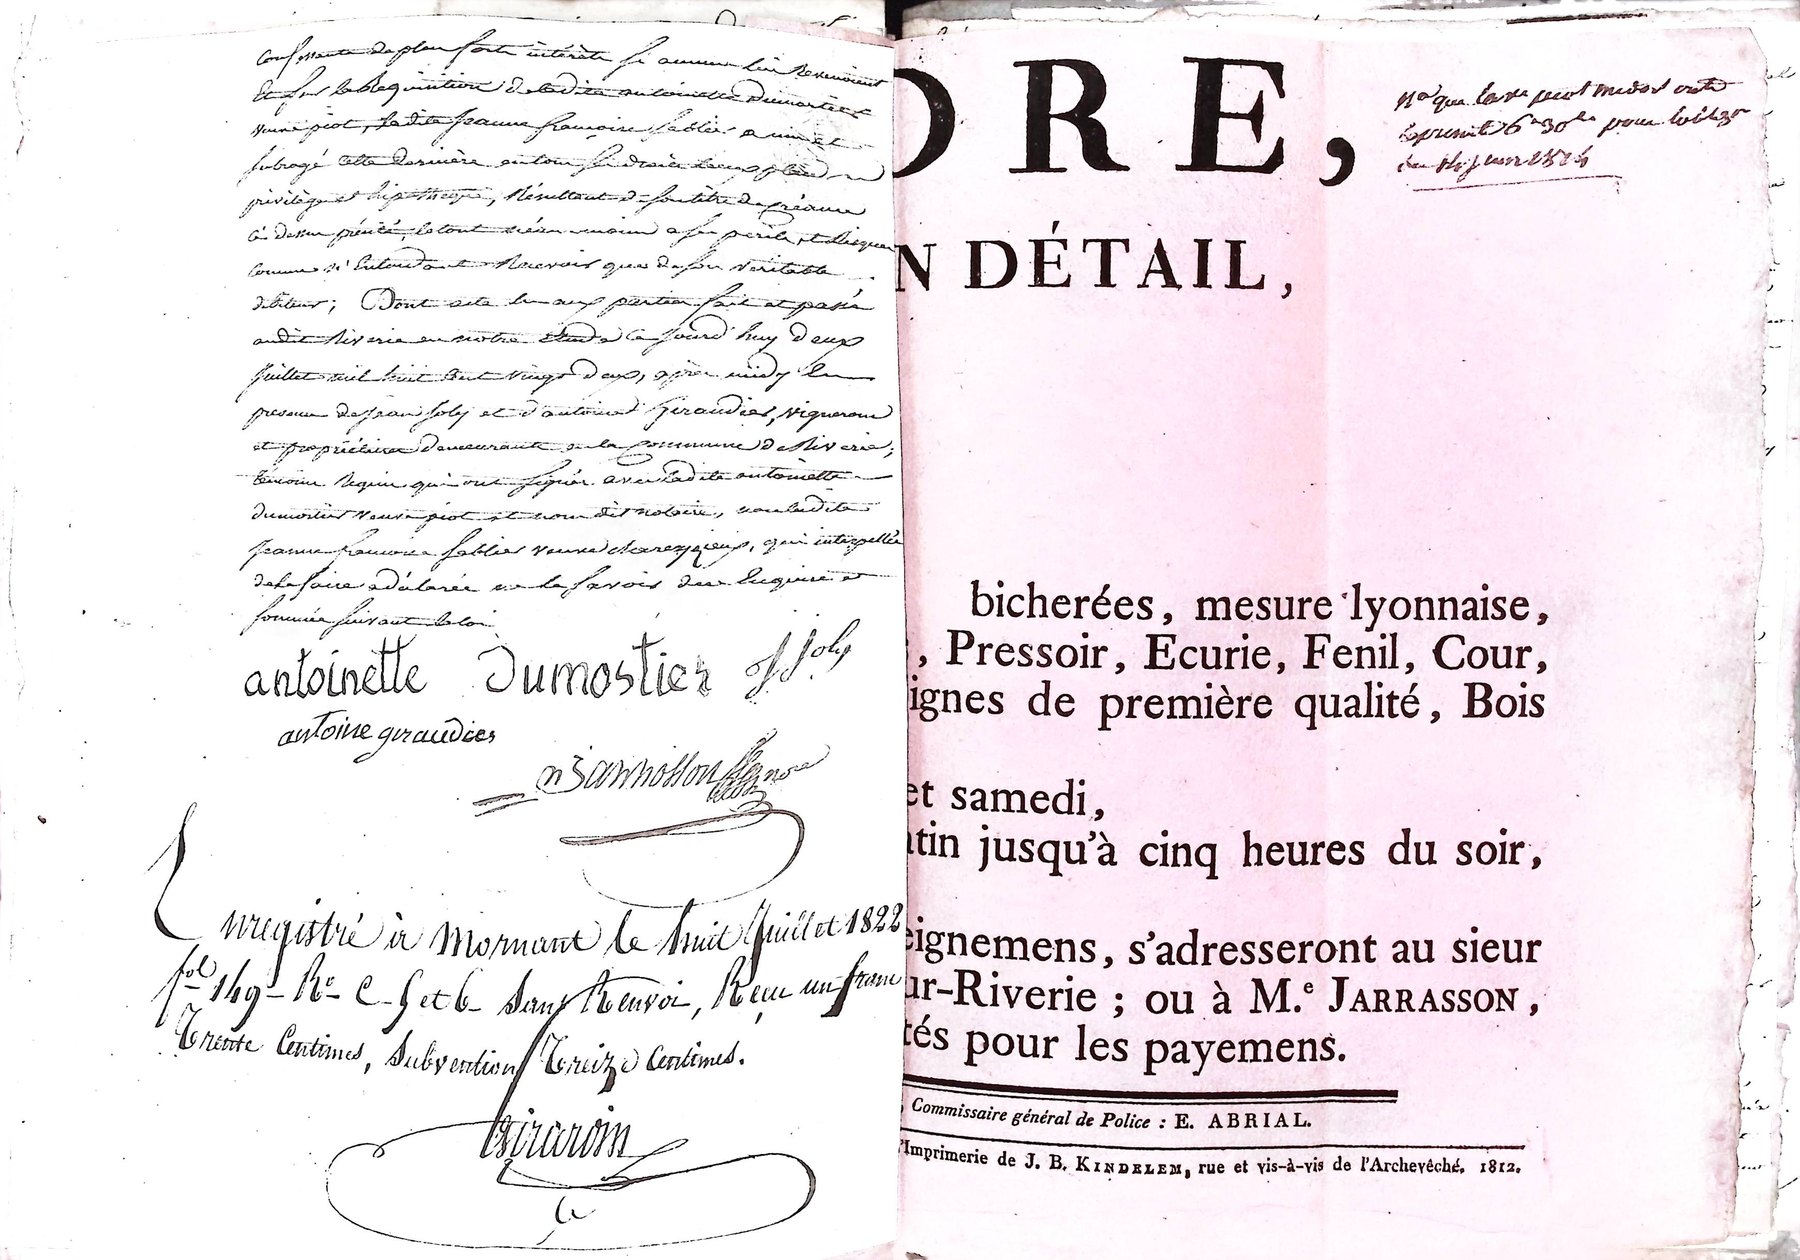 consernente de plus forts intérêts si aucun lui revenoient
Et sur la Requisition de ladite antoinette Dumortier
veuve piot, ladite jeanne françoise sablier a mis et
subrogé cette dernière en tous ses droits
privilège et hipothèque, Résultant de son titre de créance
ci dessus précité, le tout néan-moins a ses perils et Risques
comme n'Entendant Recevoir que de son veritable
débiteur; Dont acte lu aux parties fait et passé
audit Riverie en notre étude ce jourd'huy deux
juillet mil huit cent vingt deux, après midy En
presence de jean joly et d'antoine Giraudier, vignerons
et propriétaires demeurants en la Commune de Riverie;
témoins Requis qui ont signés avec ladite antoinette
dumortier veuve piot et nous dit notaire, non ladite
jeanne françoise sablier veuve charezieux, qui interpellée
de le faire a déclarée ne le savoir de ce Enquise et
sommée suivant la loi
antoinette Dumostier J Joly
antoine giraudier
Enregistré à Mornant le huit Juillet 1822
fol 149 Ro C. 5 et 6 Sans Renvoi, Reçu un franc
Trente Centimes, Subvention Treize Centimes.
Girardin
DRE,
N DÉTAIL,
bicherées, mesure lyonnaise,
, Pressoir, Ecurie, Fenil, Cour,
ignes de première qualité, Bois
et samedi,
tin jusqu'à cinq heures du soir,
eignemens, s'adresseront au sieur
ur-Riverie ; ou à M.e JARRASSON,
tés pour les payemens.
, Commissaire général de Police : E. ABRIAL.
l'Imprimerie de J. B. KINDELEM, rue et vis-à-vis de l'Archevêché. 1812.